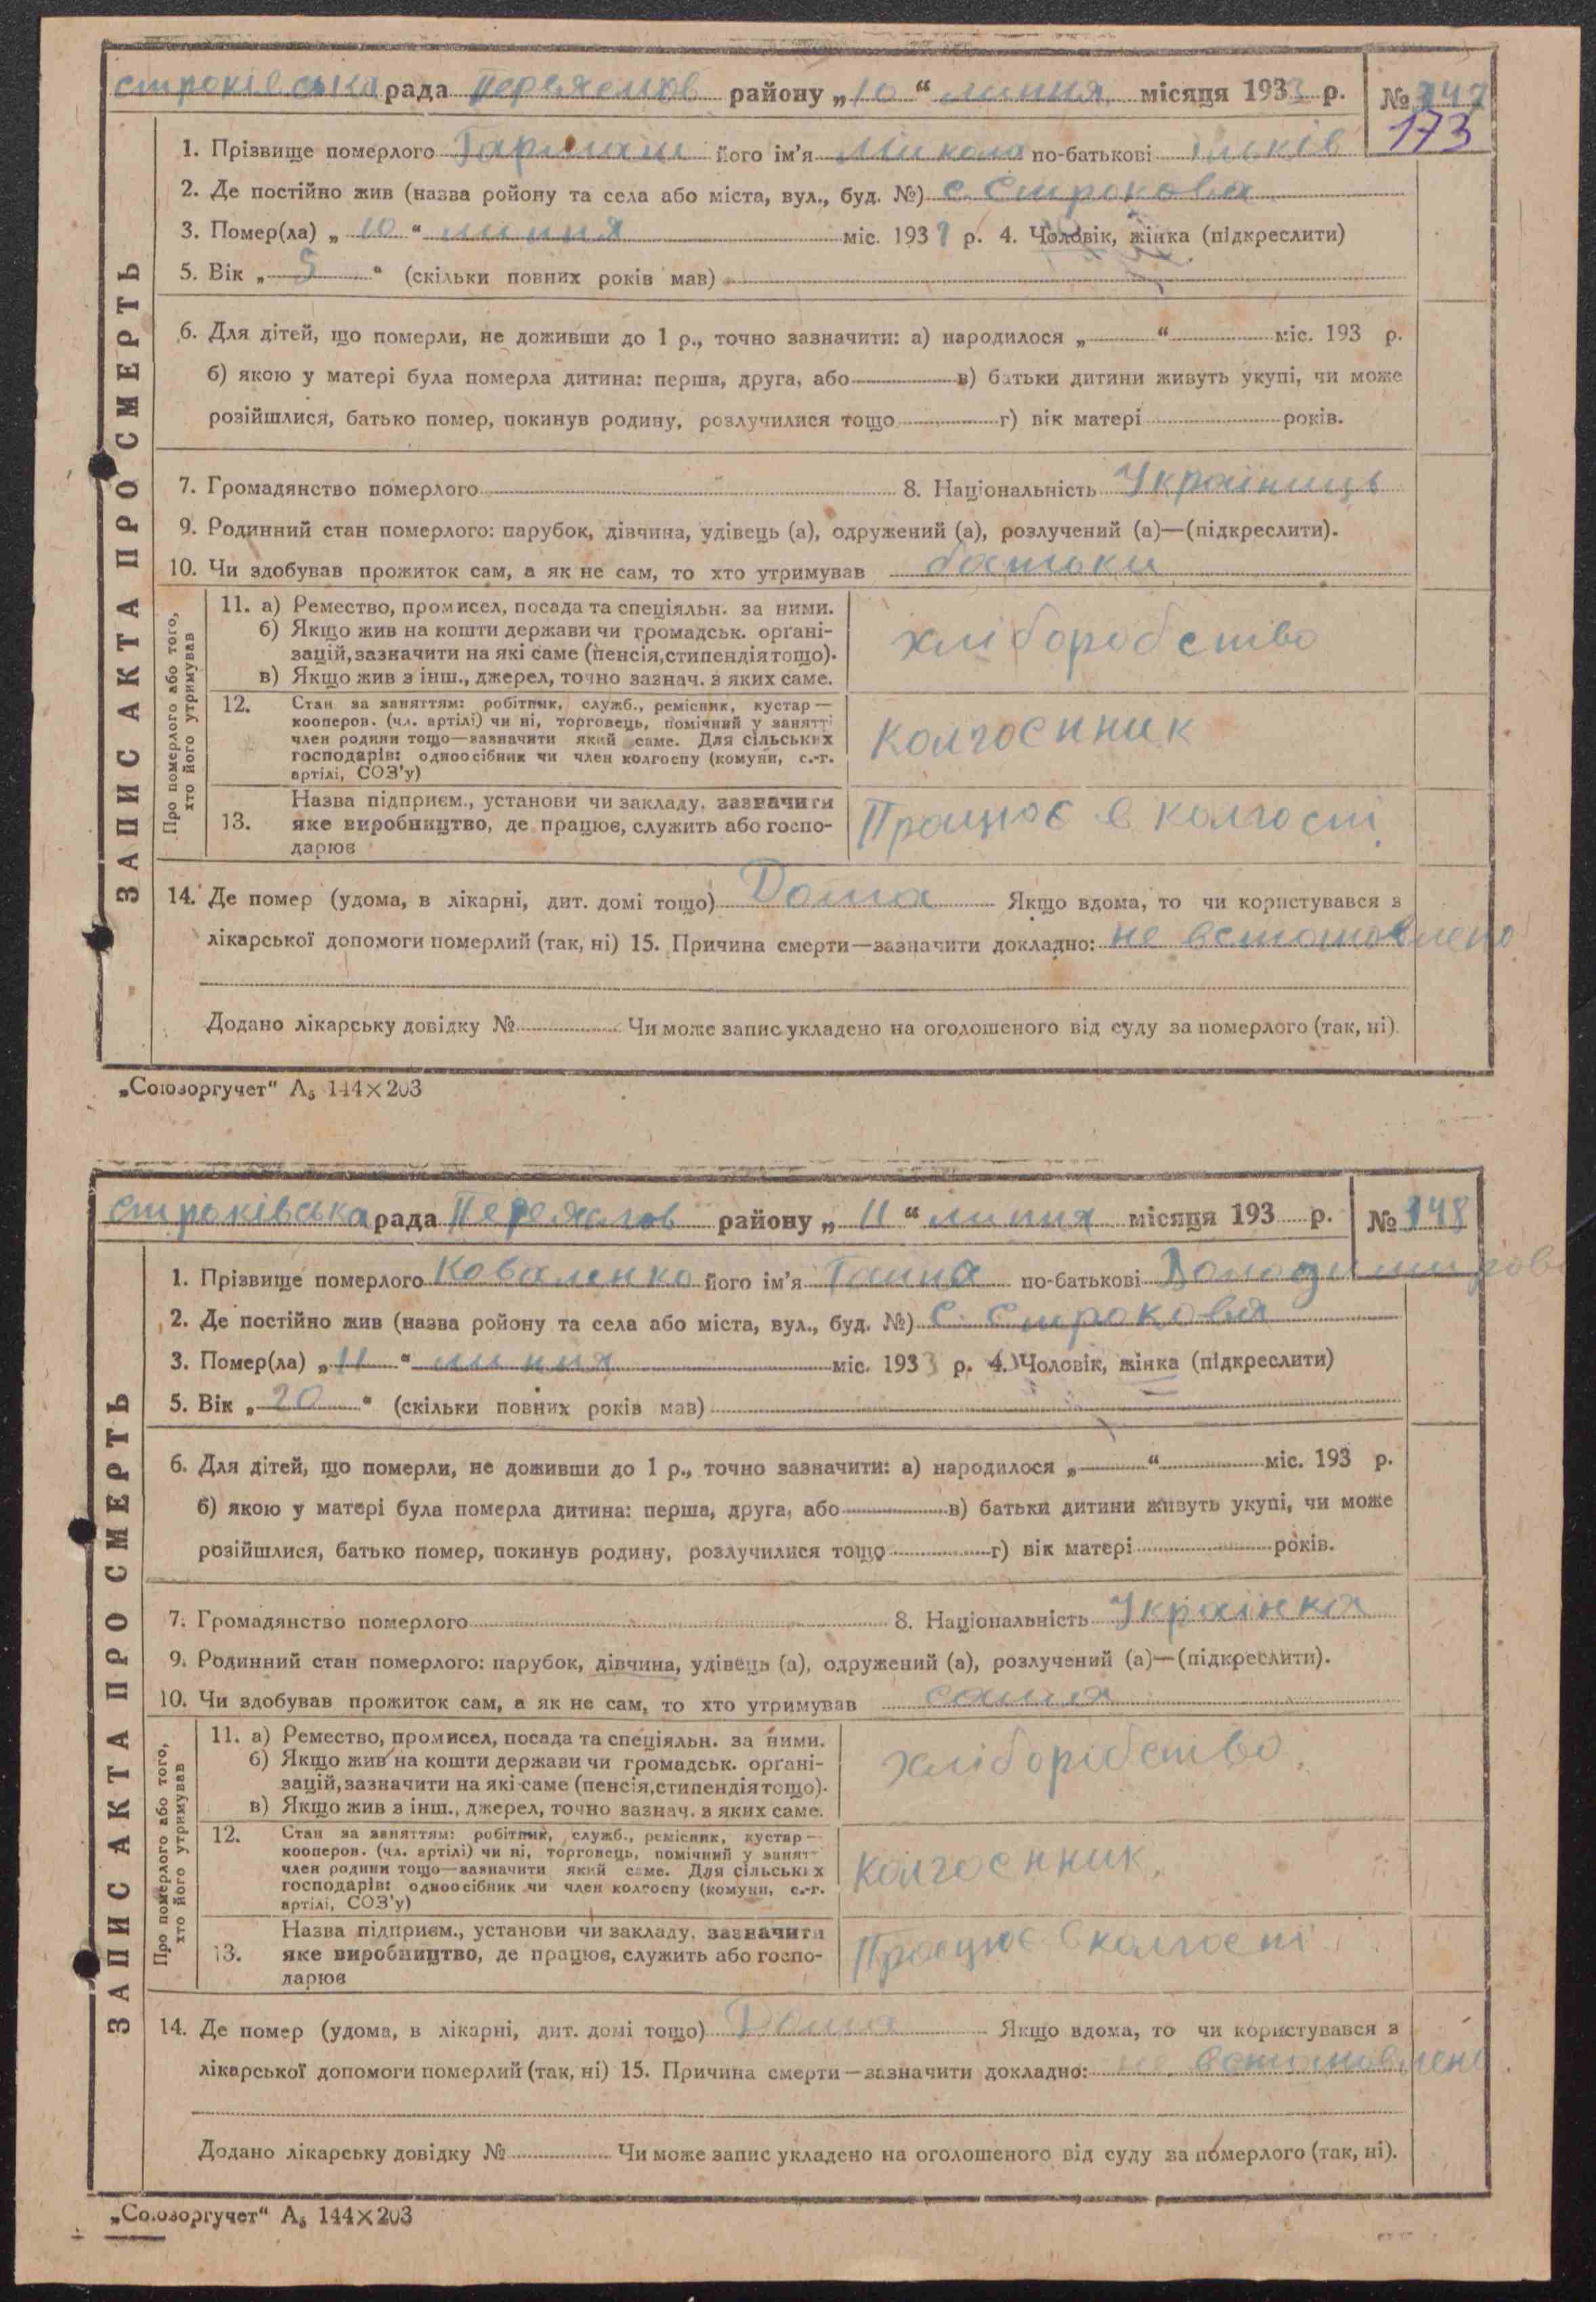 строківська рада Переяслов району „10“ липня місяця 1933 р. № 147
173
1. Прізвище померлого Гармаш його ім’я Микола по-батькові
2. Де постійно жив (назва ройону та села або міста, вул., буд. №) с. Строкова
3. Помер(ла) „10“ липня міс. 193 р. 4. Чоловік, жінка (підкреслити)
5. Вік „5“ (скільки повних років мав)
6. Для дітей, що померли, не доживши до 1 р., точно зазначити: а) народилося „ “ міс. 193 р.
б) якою у матері була померла дитина: перша, друга, або в) батьки дитини живуть укупі, чи може
розійшлися, батько помер, покинув родину, розлучилися тощо г) вік матері років.
7. Громадянство померлого 8. Національність Українець
9. Родинний стан померлого: парубок, дівчина, удівець (а), одружений (а), розлучений (а)—(підкреслити).
10. Чи здобував прожиток сам, а як не сам, то хто утримував батьки
ЗАПИС АКТА ПРО СМЕРТЬ
Про померлого або того, хто його утримував
11. а) Ремество, промисел, посада та спеціяльн. за ними.
б) Якщо жив на кошти держави чи громадськ. органі-
зацій, зазначити на які саме (пенсія, стипендія тощо).
в) Якщо жив з інш., джерел, точно зазнач. з яких саме.
хліборобство
12. Стан за заняттям: робітник, служб., ремісник, кустар—
кооперов. (чл. артілі) чи ні, торговець, помічний у занятті
член родини тощо—зазначити який саме. Для сільських
господарів: одноосібник чи член колгоспу (комуни, с.-г.
артілі, СОЗ’у)
колгоснник
13. Назва підприєм., установи чи закладу, зазначити
яке виробництво, де працює, служить або госпо-
дарює
Працює в колгоспі
14. Де помер (удома, в лікарні, дит. домі тощо) Дома Якщо вдома, то чи користувався з
лікарської допомоги померлий (так, ні) 15. Причина смерти—зазначити докладно: не встановлено
Додано лікарську довідку № Чи може запис укладено на оголошеного від суду за померлого (так, ні).
„Союзоргучет“ А₅ 144×203
строківська рада Переяслов району „11“ липня місяця 193 р. № 148
1. Прізвище померлого Коваленко його ім’я Ганна по-батькові Володимиров
2. Де постійно жив (назва ройону та села або міста, вул., буд. №) с. Строковая
3. Помер(ла) „11“ липня міс. 1933 р. 4. Чоловік, жінка (підкреслити)
5. Вік „20“ (скільки повних років мав)
6. Для дітей, що померли, не доживши до 1 р., точно зазначити: а) народилося „ “ міс. 193 р.
б) якою у матері була померла дитина: перша, друга, або в) батьки дитини живуть укупі, чи може
розійшлися, батько помер, покинув родину, розлучилися тощо г) вік матері років.
7. Громадянство померлого 8. Національність Українка
9. Родинний стан померлого: парубок, дівчина, удівець (а), одружений (а), розлучений (а)—(підкреслити).
10. Чи здобував прожиток сам, а як не сам, то хто утримував
ЗАПИС АКТА ПРО СМЕРТЬ
Про померлого або того, хто його утримував
11. а) Ремество, промисел, посада та спеціяльн. за ними.
б) Якщо жив на кошти держави чи громадськ. органі-
зацій, зазначити на які саме (пенсія, стипендія тощо).
в) Якщо жив з інш., джерел, точно зазнач. з яких саме.
хліборібство
12. Стан за заняттям: робітник, служб., ремісник, кустар—
кооперов. (чл. артілі) чи ні, торговець, помічний у занятт
член родини тощо—зазначити який саме. Для сільських
господарів: одноосібник чи член колгоспу (комуни, с.-г.
артілі, СОЗ’у)
колгоснник
13. Назва підприєм., установи чи закладу, зазначити
яке виробництво, де працює, служить або госпо-
дарює
Працює в колгоспі
14. Де помер (удома, в лікарні, дит. домі тощо) Дома Якщо вдома, то чи користувався з
лікарської допомоги померлий (так, ні) 15. Причина смерти—зазначити докладно: не встановлено
Додано лікарську довідку № Чи може запис укладено на оголошеного від суду за померлого (так, ні).
„Союзоргучет“ А₅ 144×203